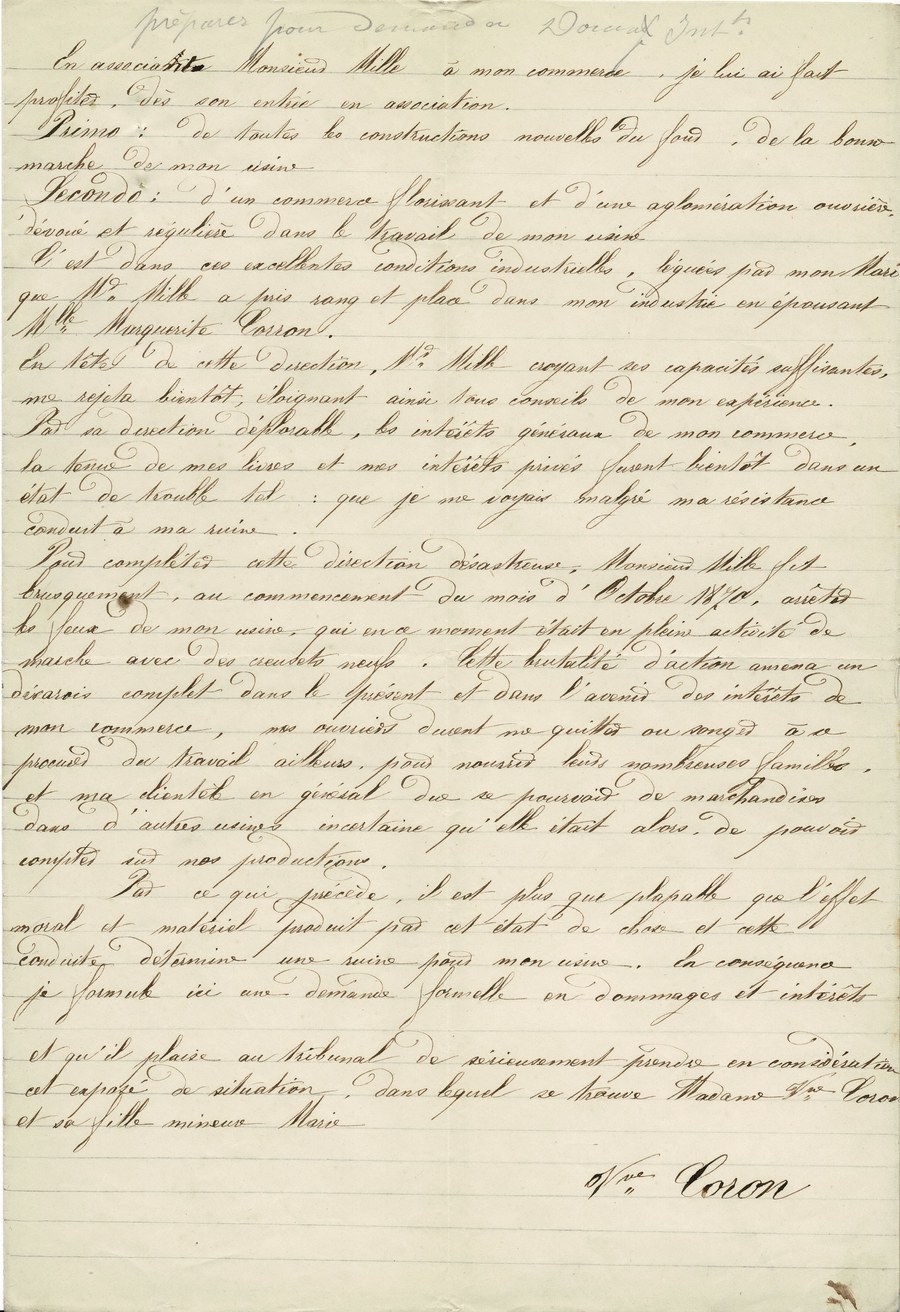 préparer pour Demander Domag Intts
En associant Monsieur Mille à mon commerce, je lui ai fait
profiter, dès son entrée en association.
Primo : de toutes les constructions nouvelles du fond, de la bonne
marche de mon usine
Secondo : d'un commerce florissant et d'une aglomération ouvrière,
dévoué et régulière dans le travail de mon usine
C'est dans ces excellentes conditions industrielles, léguées par mon Mari
que Mr Mille a pris rang et place dans mon industrie en épousant
Mlle Marguerite Corron.
En tête de cette direction, Mr Mille croyant ses capacités suffisantes,
me rejeta bientôt, éloignant ainsi tous conseils de mon expérience.
Par sa direction déplorable, les intérêts généraux de mon commerce,
la tenue de mes livres et mes intérêts privés furent bientôt dans un
état de trouble tel : que je me voyais malgré ma résistance
conduit à ma ruine.
Pour compléter cette direction désastreuse, Monsieur Mille fit
brusquement, au commencement du mois d'Octobre 1870, arrêter
les feux de mon usine, qui en ce moment était en plein activité de
marche avec des creusets neufs. Cette brutalité d'action amena un
désarois complet dans le présent et dans l'avenir des intérêts de
mon commerce, nos ouvriers durent me quitter ou songer à se
procurer du travail ailleurs, pour nourrir leurs nombreuses familles,
et ma clientèle en général due se pourvoir de marchandises
dans d'autres usines incertaine qu'elle était alors, de pouvoir
compter sur nos productions.
Par ce qui précède, il est plus que plapable que l'effet
moral et matériel produit par cet état de chose et cette
conduite, détermine une ruine pour mon usine. En conséquence
je formule ici une demande formelle en dommages et intérêts
et qu'il plaise au tribunal de sérieusement prendre en considération
cet exposé de situation, dans lequel se trouve Madame Vve Coron
et sa fille mineure Marie
Vve Coron